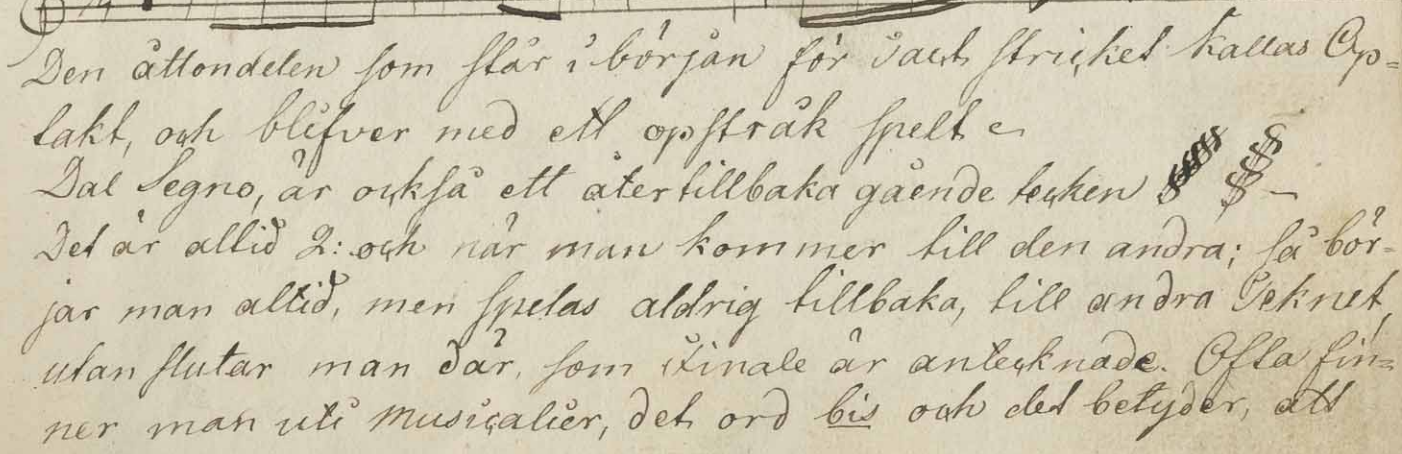 Den åttondelen som står i början för Tact stricket kallas Op=
takt, och blifver med ett opstråk spelt
Dal Segno, är också ett åter tillbaka gående tecken
Det är altid 2: och när man kommer till den andra; så bör=
jar man altid, men spelas aldrig tillbaka, till andra Teknet,
utan slutar man där, som Finale är antecknade. Ofta fin=
ner man uti Musicalier, det ord bis och det betyder, att